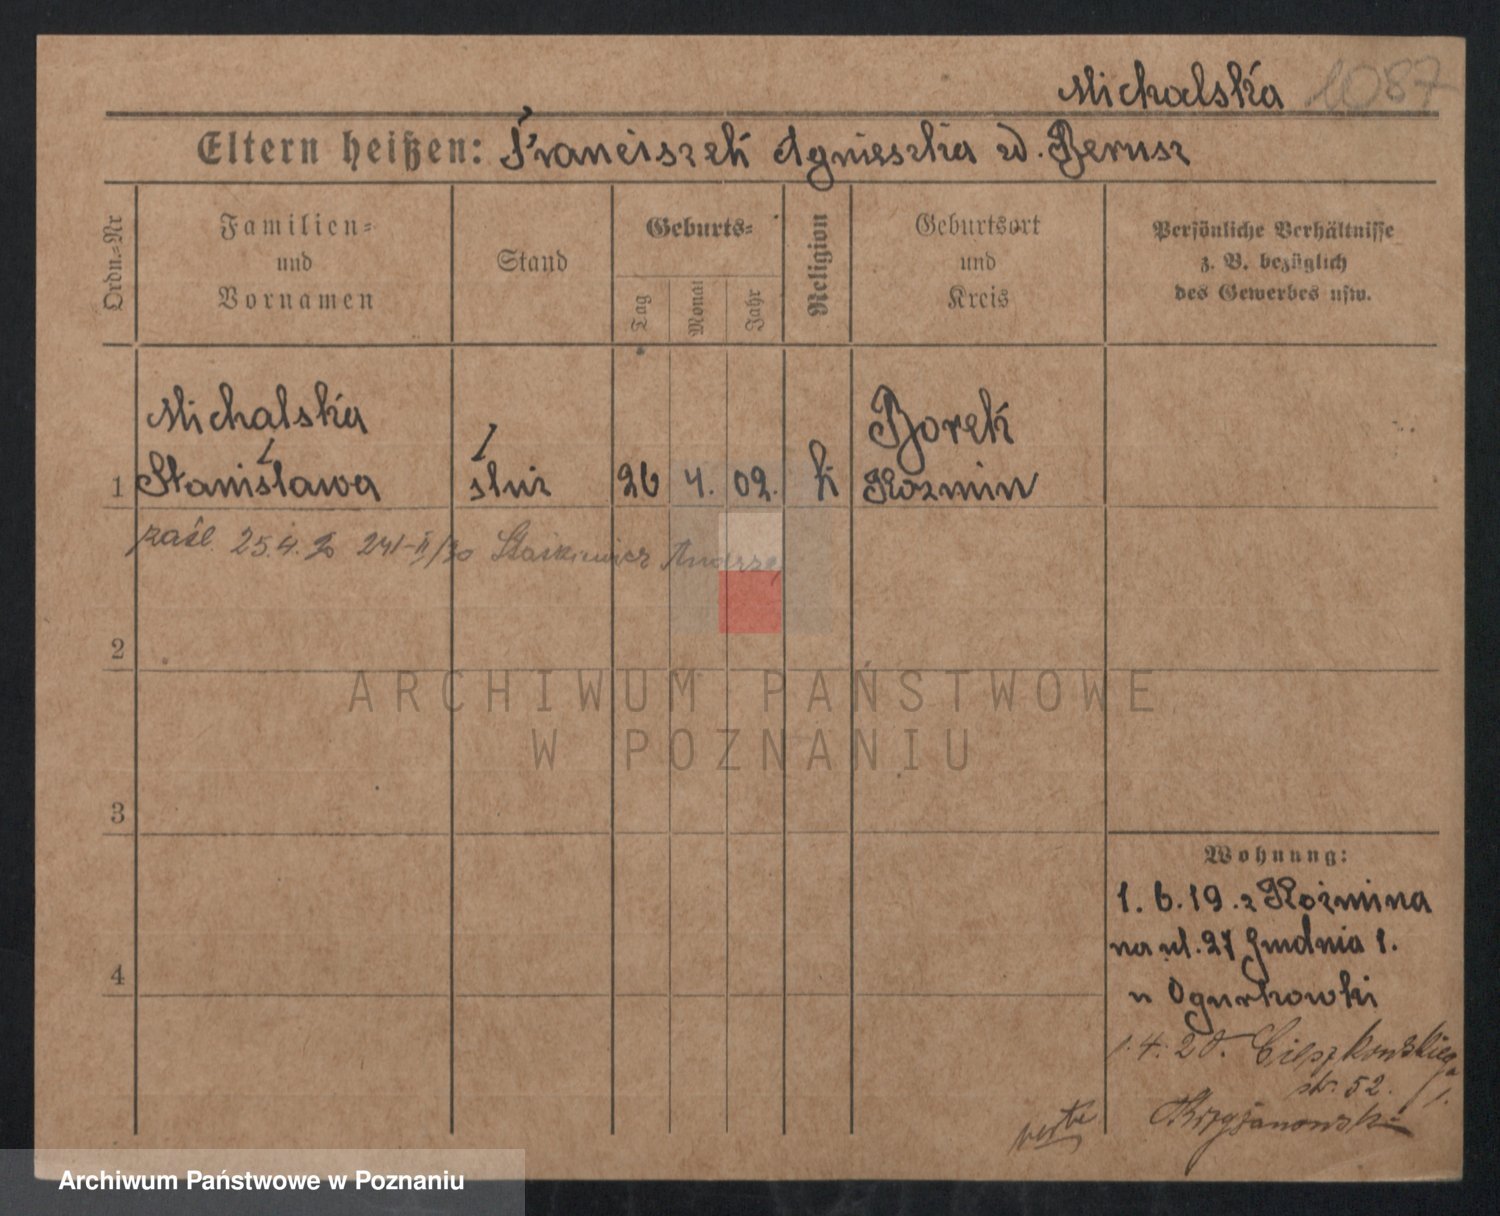 Michalska 1087
Eltern heißen: Franciszek Agnieszka d. Berusz
Ordn.-Nr
Familien-
und
Vornamen
Stand
Geburts-
Tag
Monat
Jahr
Religion
Geburtsort
und
Kreis
Persönliche Verhältnisse
z. B. bezüglich
des Gewerbes usw.
Michalska
Borek
1 Stanisława służ 26 4. 02. k Kozmin
zaśl. 25.4. 241-II/30
2
ARCHIWUM PAŃSTWOWE
W POZNANIU
3
Wohnung:
1.6.19. z Kozmina
na ul. 27 Grudnia 1.
4
u Ogurkowski
1.4.20. Cieszkowskiego
str. 52. 1.
Krzyżanowski
Archiwum Państwowe w Poznaniu